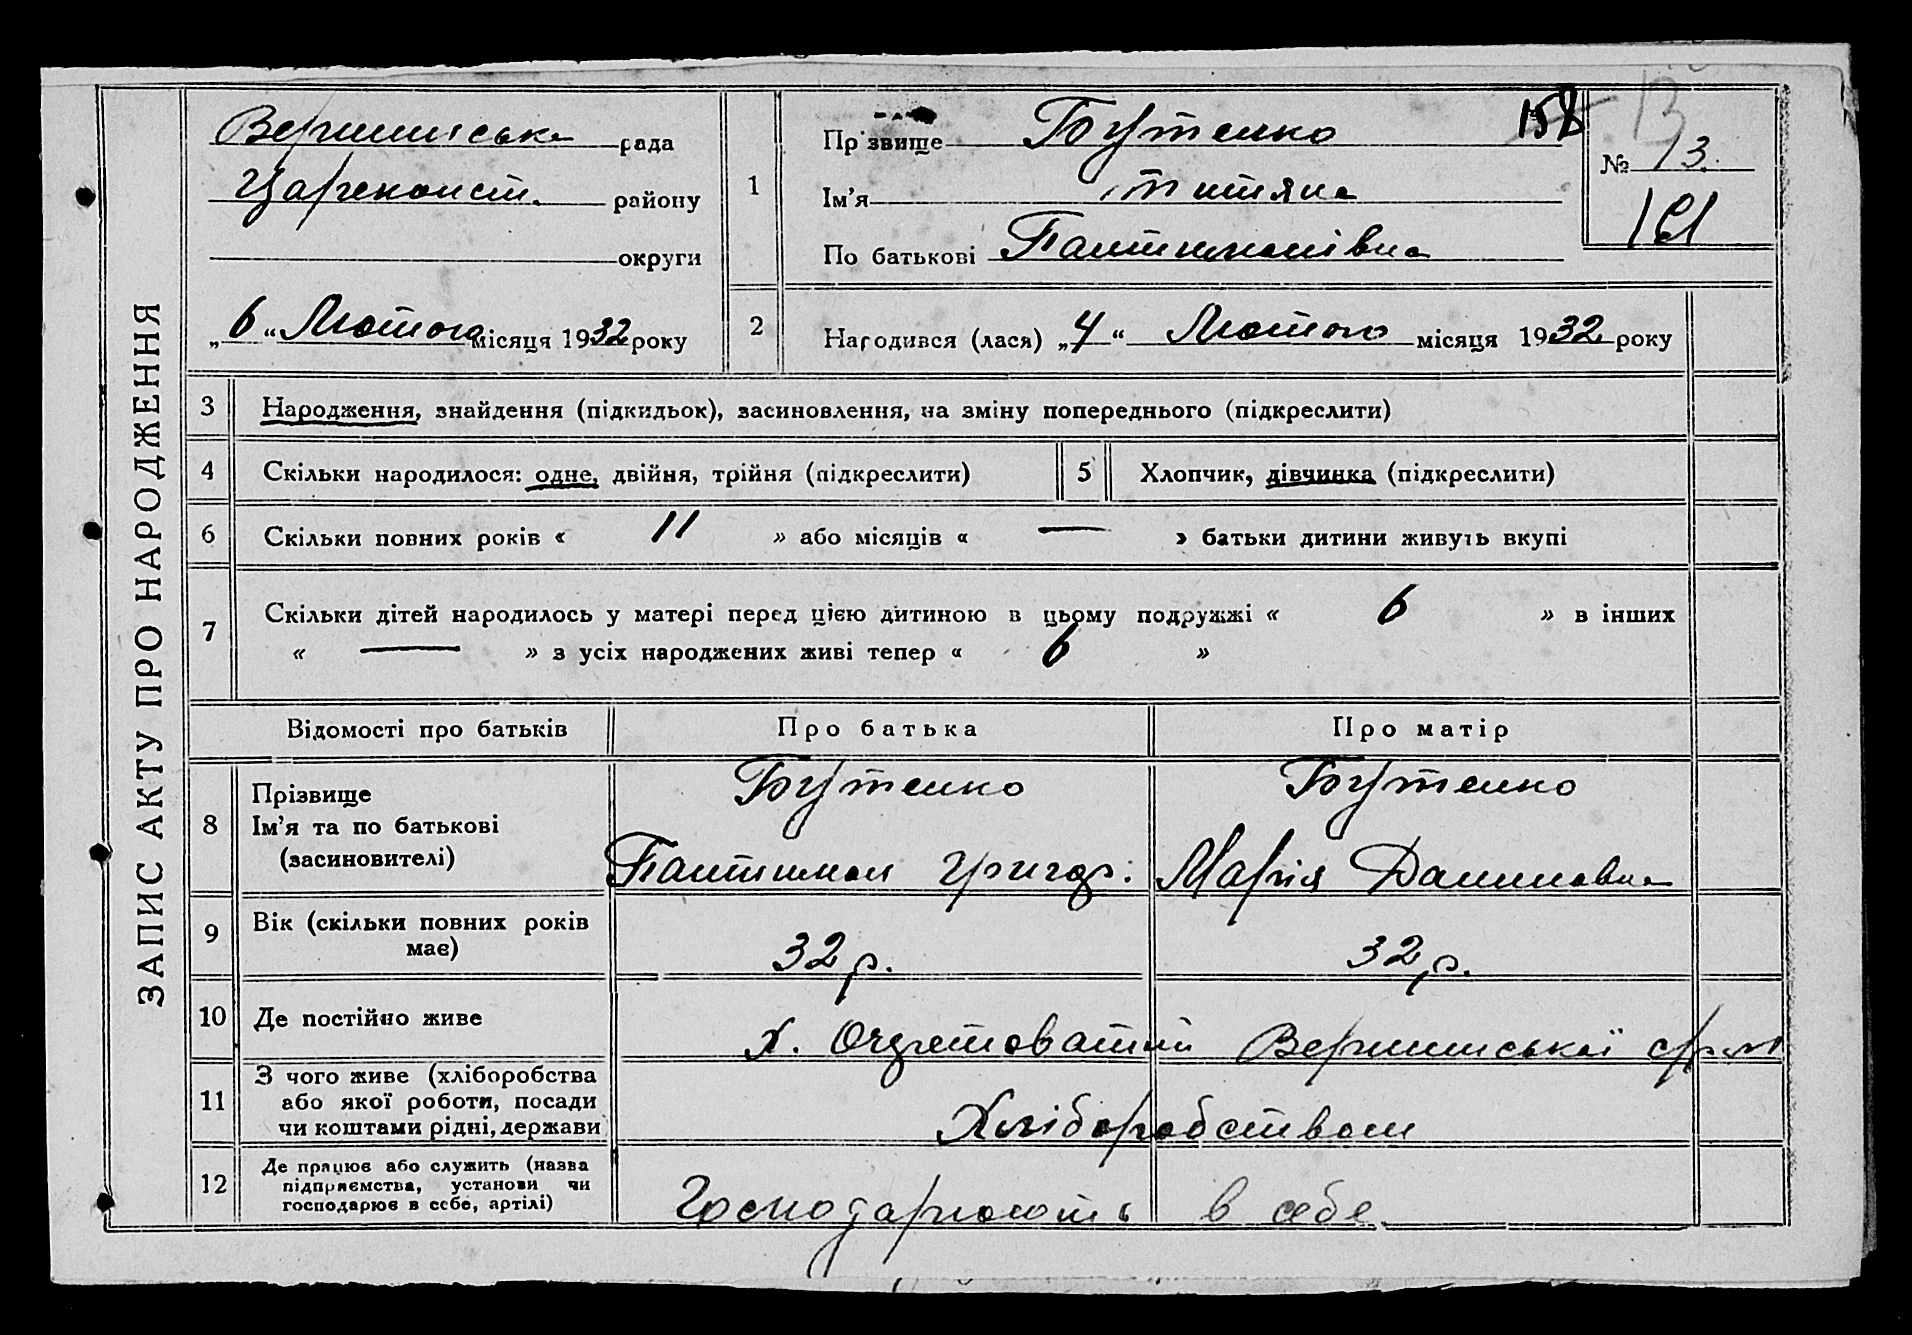 ЗАПИС АКТУ ПРО НАРОДЖЕННЯ
Вершинська рада
Цареконст. району
округи
„6“ Лютого місяця 1932 року
1
Прізвище Бутенко
Ім'я Титяна
По батькові Пантимонівна
158
13
№ 13.
161
2
Народився (лася) „4“ Лютого місяця 1932 року
3 Народження, знайдення (підкидьок), засиновлення, на зміну попереднього (підкреслити)
4 Скільки народилося: одне, двійня, трійня (підкреслити)
5 Хлопчик, дівчинка (підкреслити)
6 Скільки повних років « 11 » або місяців « — » батьки дитини живуть вкупі
7 Скільки дітей народилось у матері перед цією дитиною в цьому подружжі « 6 » в інших
« — » з усіх народжених живі тепер « 6 »
Відомості про батьків Про батька Про матір
8 Прізвище
Ім'я та по батькові
(засиновителі)
Бутенко
Пантимон Григор:
Бутенко
Марія Даниловна
9 Вік (скільки повних років
має)
32 р. 32 р.
10 Де постійно живе
х. Вершинської с/ради
11 З чого живе (хліборобства
або якої роботи, посади
чи коштами рідні, держави
Хліборобством
12 Де працює або служить (назва
підприємства, установи чи
господарює в себе, артілі)
Господарюють в себе